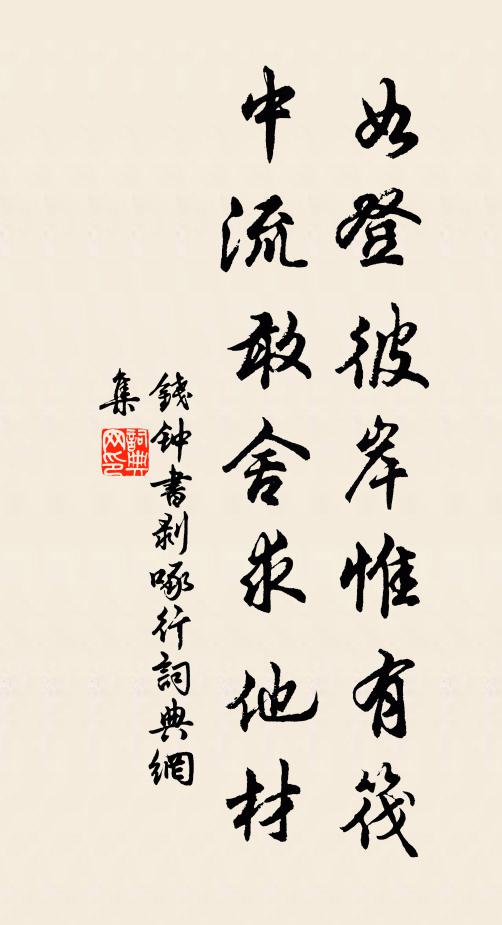 如登彼岸惟有筏
中流敢舍求他材
錢钟書剥啄行詞典網
集
詞典
网印